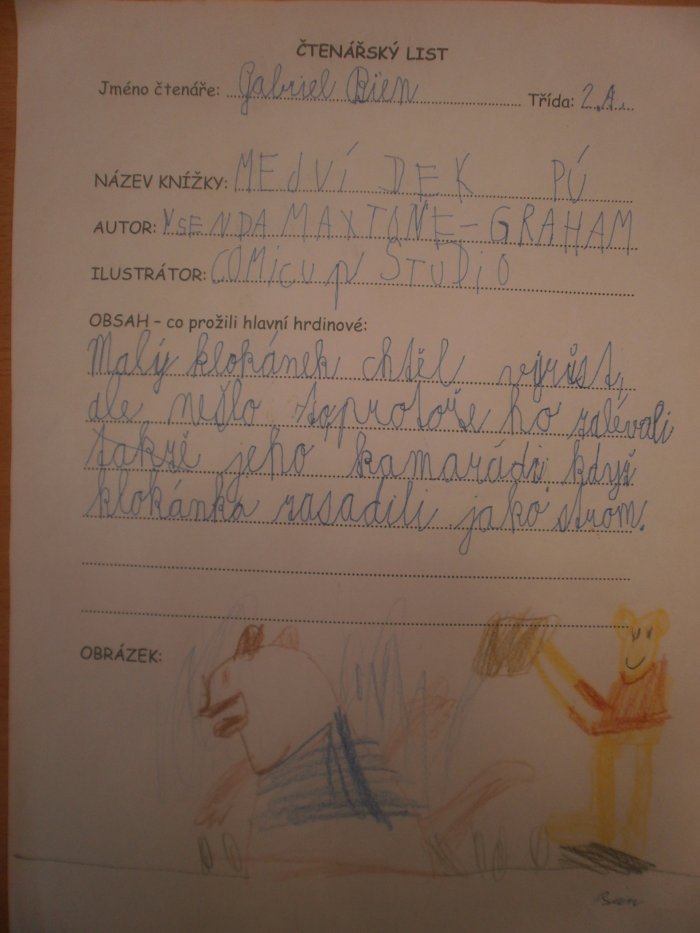 ČTENÁŘSKÝ LIST
Jméno čtenáře: Gabriel Bien Třída: 2.A.
NÁZEV KNÍŽKY: MEdVí DEK PÚ
AUTOR: YSENDA MAXTONE-GRAHAM
ILUSTRÁTOR: COMiCUP STUDiO
OBSAH – co prožili hlavní hrdinové:
Malý klokánek chtěl vyrůst,
ale nešlo to protože ho zalévali
takže jeho kamarádi když
klokánka zasadili jako strom.
OBRÁZEK:
Bien